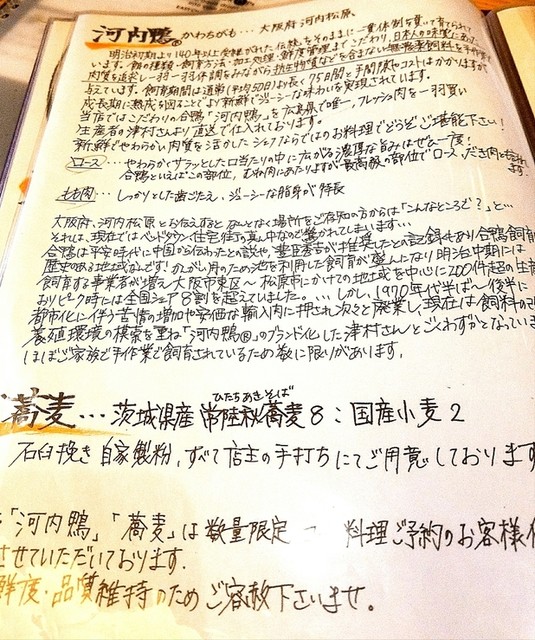 河内鴨® かわちがも… 大阪府 河内松原、
明治初期より140年以上受け継がれた伝統をそのままに一貫体制を貫いて育てられて
います。餌の種類・飼育方法・加工処理・鮮度管理までこだわり、日本人の味覚にあった
肉質を追求し一羽一羽体調をみながら抗生物質などを含まない無農薬飼料を手作業で
与えています。飼育期間は通常(平均50日)より長く75日間と手間隙やコストはかかりますが
成長期に熟成を図ることでより新鮮でジューシーな味わいを実現されています。
当店ではこだわりの合鴨「河内鴨」を広島県で唯一、フレッシュ肉を一羽買い
生産者の津村さんより直送で仕入れております。
新鮮でやわらかい肉質を活かしたシェフならではのお料理でどうぞご堪能下さい!
ロース… やわらかくサラッとした口当たりの中に広がる濃厚な旨みはぜひ一度!
合鴨といえばこの部位、むね肉にあたりますが最高級の部位でロース、だき肉とも言われ
ます。
もも肉… しっかりとした歯ごたえ、ジューシーな脂身が特長
大阪府、河内松原とお伝えするとなんとなく場所をご存知の方からは「こんなところで?」と…
それは、現在ではベッドタウン住宅街の真ん中なので驚かれてしまいます…
合鴨は平安時代に中国から伝わったとの説や、豊臣秀吉が推奨したとの記録もあり合鴨飼育
歴史のある地域なんです! かんがい用のため池を利用した飼育が盛んになり明治中期には
飼育する事業者が増え大阪市東区〜松原市にかけての地域を中心に200件超の生産
おりピーク時には全国シェア8割を超えていました。…しかし、1970年代半ば〜後半に
都市化に伴う苦情の増加や安価な輸入肉に押され次々と廃業し、現在は飼料の改
養殖環境の模索を重ね「河内鴨®」のブランド化した津村さんとごくわずかとなってい
ほぼご家族で手作業で飼育されているため数に限りがあります。
蕎麦… 茨城県産 常陸秋蕎麦 8:国産小麦 2
ひたちあきそば
石臼挽き 自家製粉、すべて店主の手打ちにてご用意しております
「河内鴨」「蕎麦」は数量限定 料理ご予約のお客様
させていただいております。
鮮度・品質維持のためご容赦下さいませ。